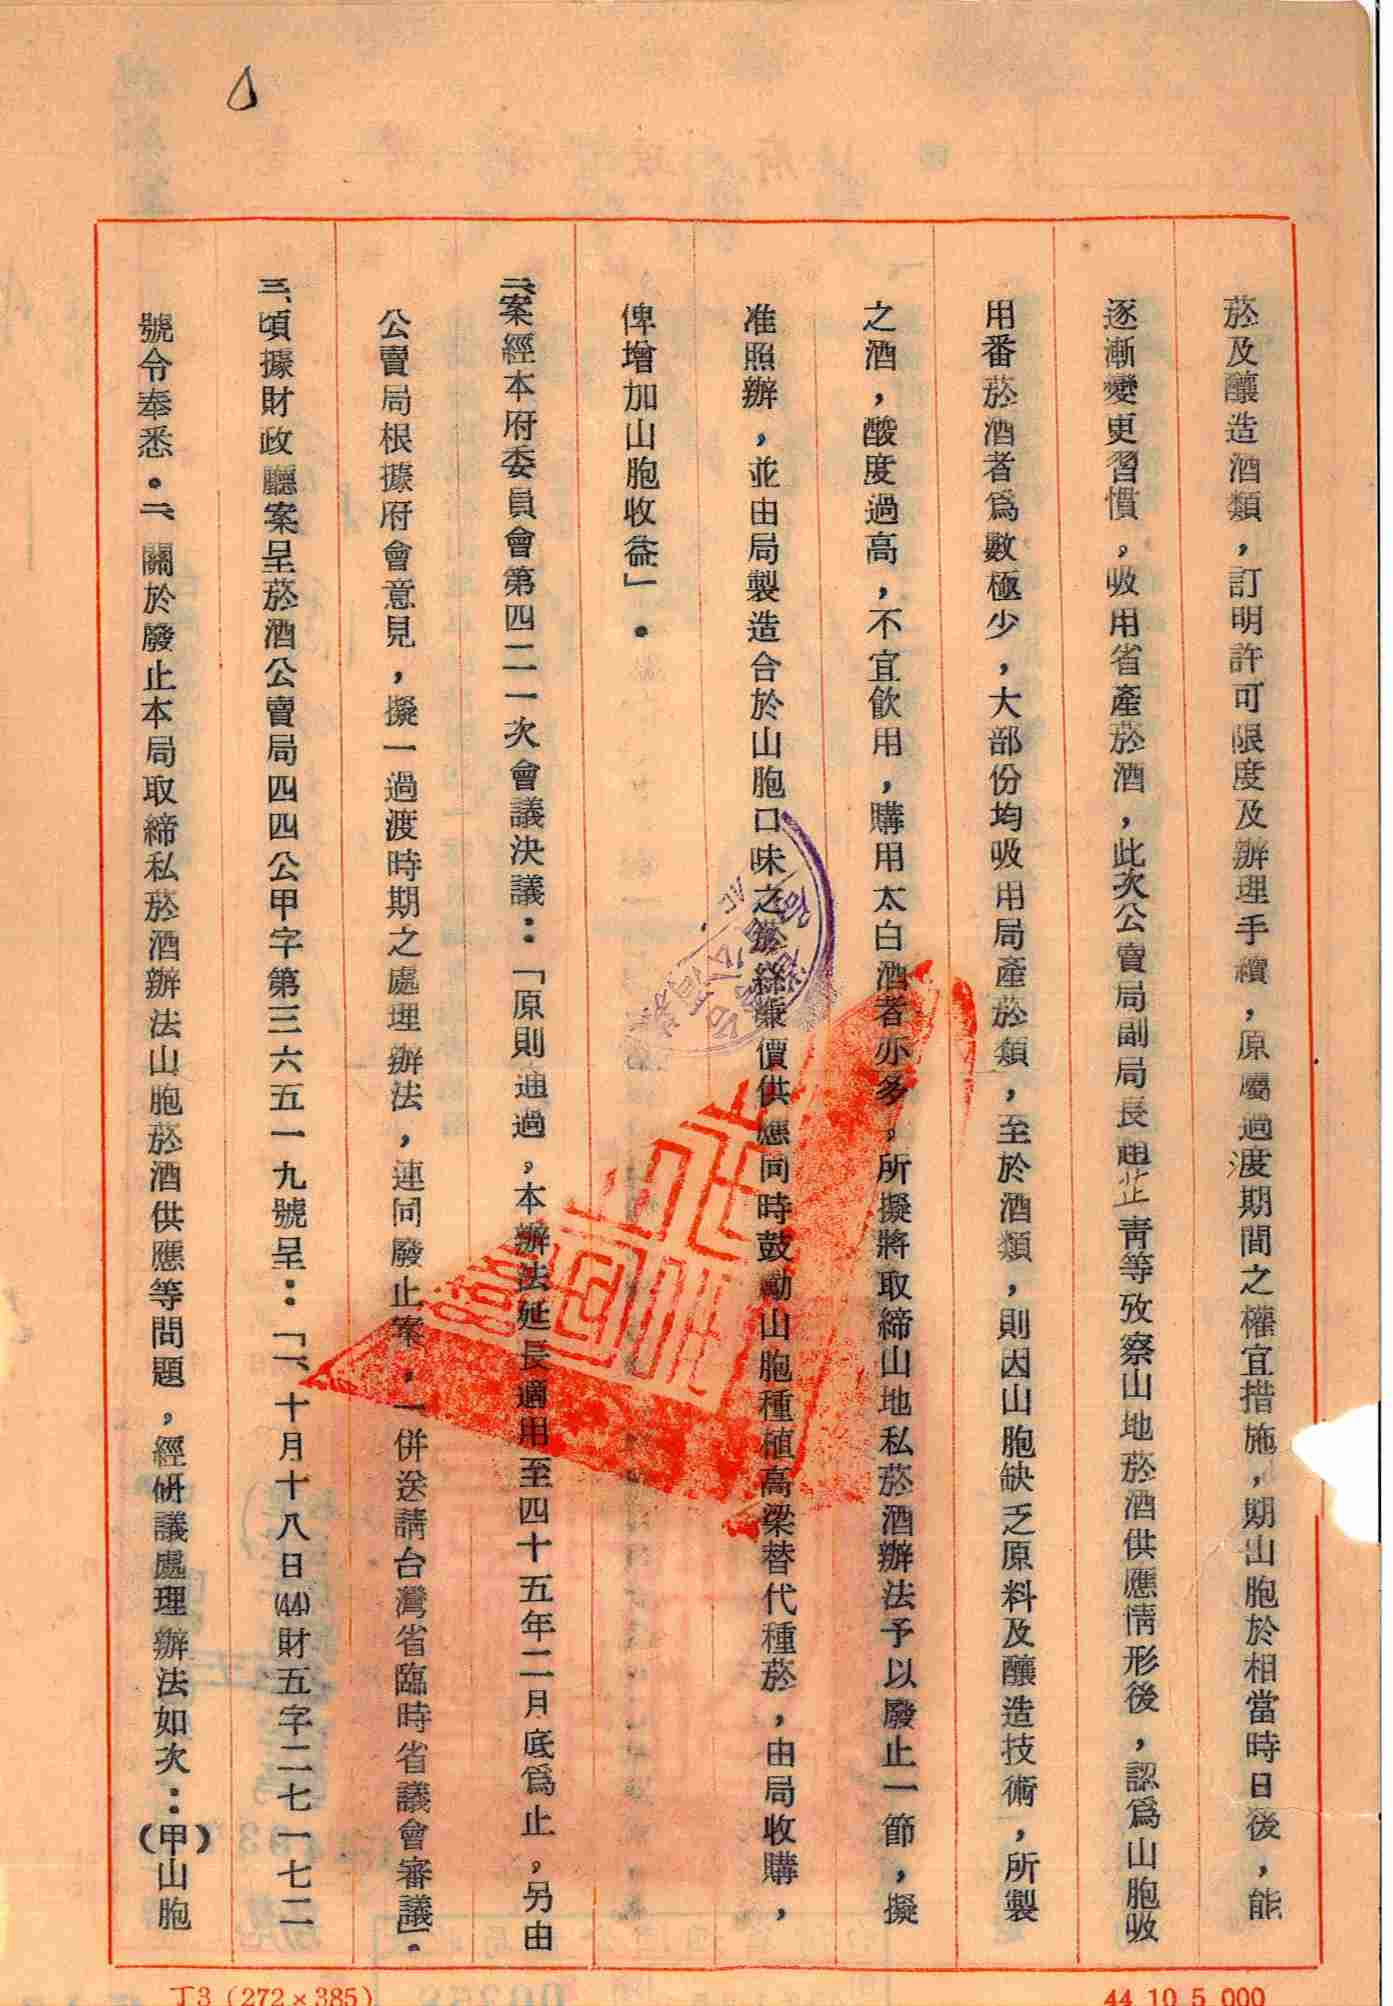 菸及釀造酒類，訂明許可限度及辦理手續，原屬過渡期間之權宜措施，期山胞於相當時日後，能
逐漸變更習慣，吸用省產菸酒，此次公賣局副局長趙芷青等攷察山地菸酒供應情形後，認為山胞吸
用番菸酒者為數極少，大部份均吸用局產菸類，至於酒類，則因山胞缺乏原料及釀造技術，所製
之酒，酸度過高，不宜飲用，購用太白酒者亦多，所擬將取締山地私菸酒辦法予以廢止一節，擬
准照辦，並由局製造合於山胞口味之菸絲廉價供應同時鼓勵山胞種植高梁替代種菸，由局收購，
俾增加山胞收益」。
二、案經本府委員會第四二一次會議決議：「原則通過，本辦法延長適用至四十五年二月底為止，另由
公賣局根據府會意見，擬一過渡時期之處理辦法，連同廢止案，一併送請台灣省臨時省議會審議」。
三、頃據財政廳案呈菸酒公賣局四四公甲字第三六五一九號呈：「一、十月十八日(44)財五字二七一七二
號令奉悉。二、關於廢止本局取締私菸酒辦法山胞菸酒供應等問題，經研議處理辦法如次：(甲)山胞
丁3(272×385)
44 10 5,000